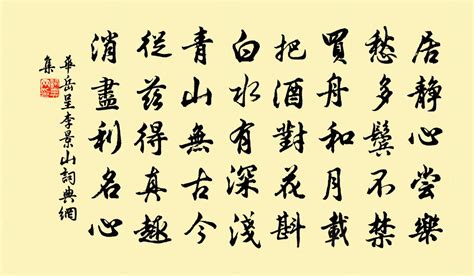 居静心尝樂
愁多鬓不禁
買舟和月載
把酒對花斟
白水有深淺
青山無古今
從兹得真趣
消盡利名心
華岳呈李景山詞典網
集